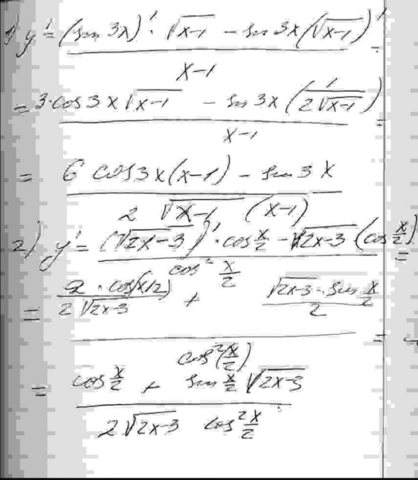 1) y' = ((sin 3x)' · √(x-1) - sin 3x (√(x-1))') / (x-1) =
= (3·cos 3x √(x-1) - sin 3x (1/(2√(x-1)))) / (x-1) =
= (6 cos 3x (x-1) - sin 3x) / (2 √(x-1) (x-1))
2) y' = ((√(2x-3))' · cos x/2 - √(2x-3) (cos x/2)') / (cos² x/2) =
= ((2 · cos(x/2)) / (2√(2x-3)) + (√(2x-3) · sin x/2) / 2) / (cos²(x/2)) =
= (cos x/2 + sin x/2 √(2x-3)) / (2√(2x-3) cos² x/2)